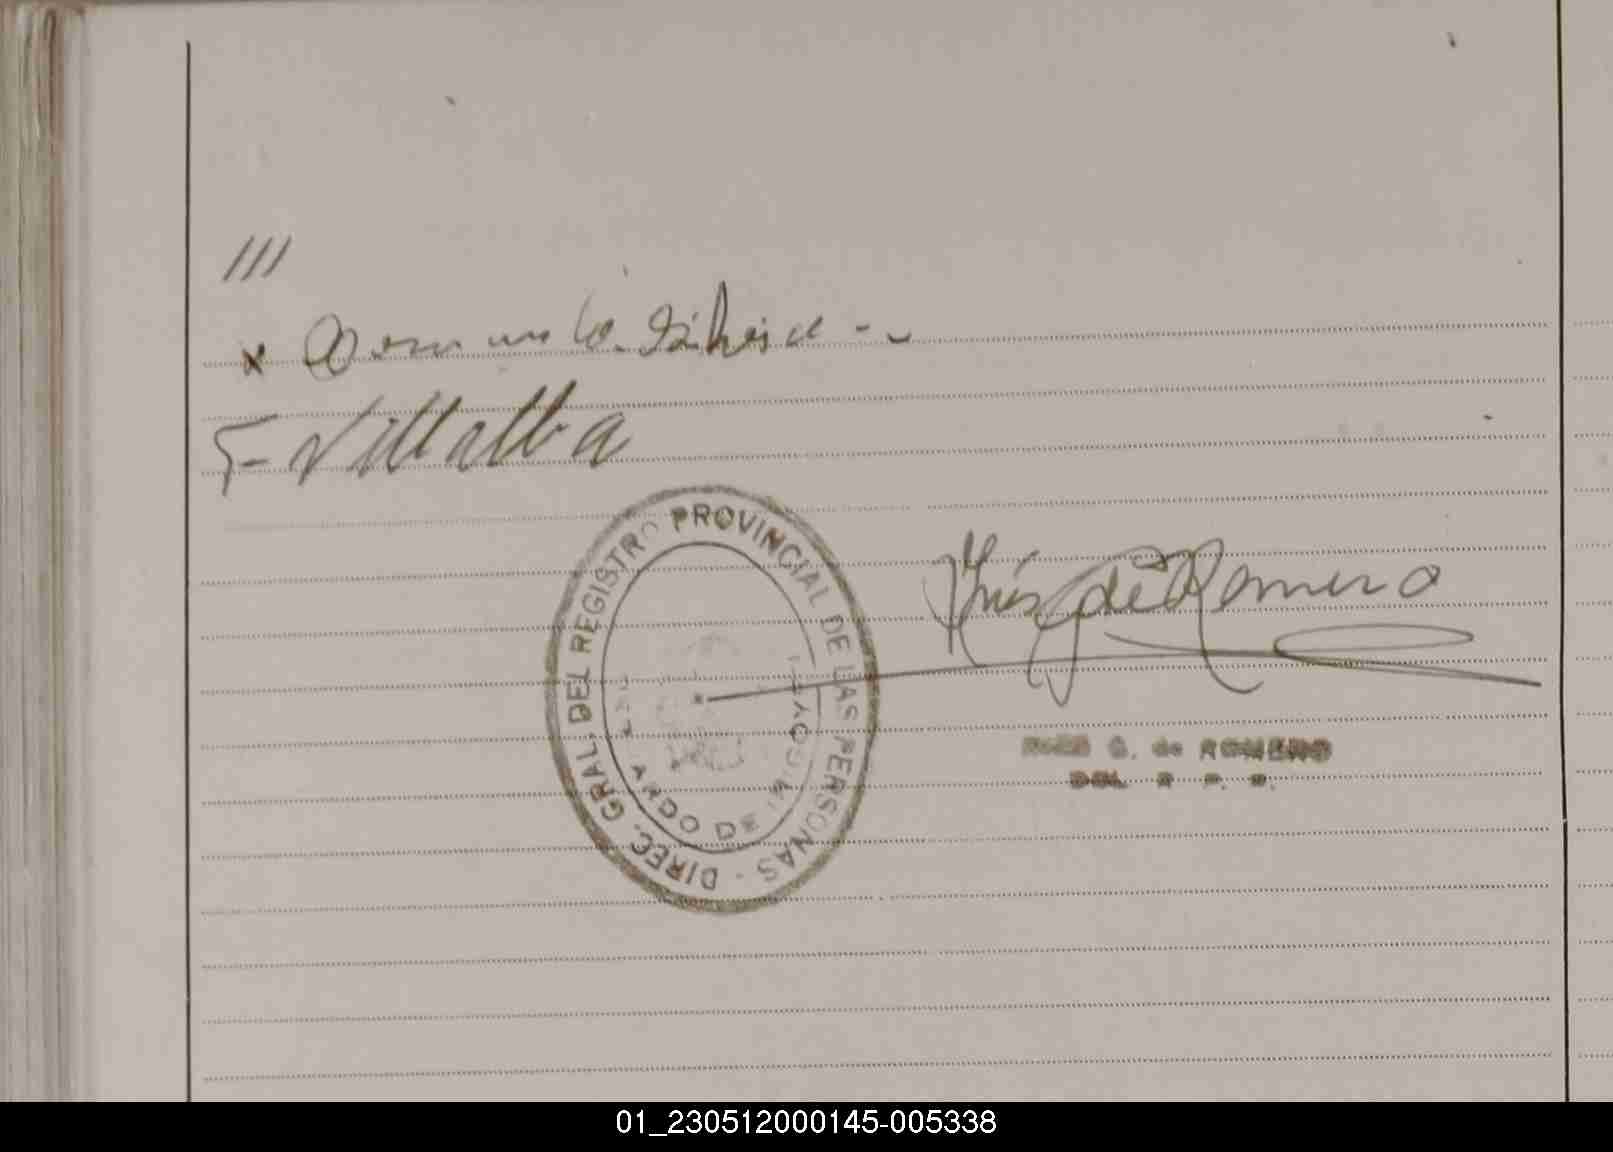 ///
x
F Villalba
DIREC. GRAL. DEL REGISTRO PROVINCIAL DE LAS PERSONAS
DE
Inés G de Romero
INES G. de ROMERO
DEL R. P. P.
01_230512000145-005338